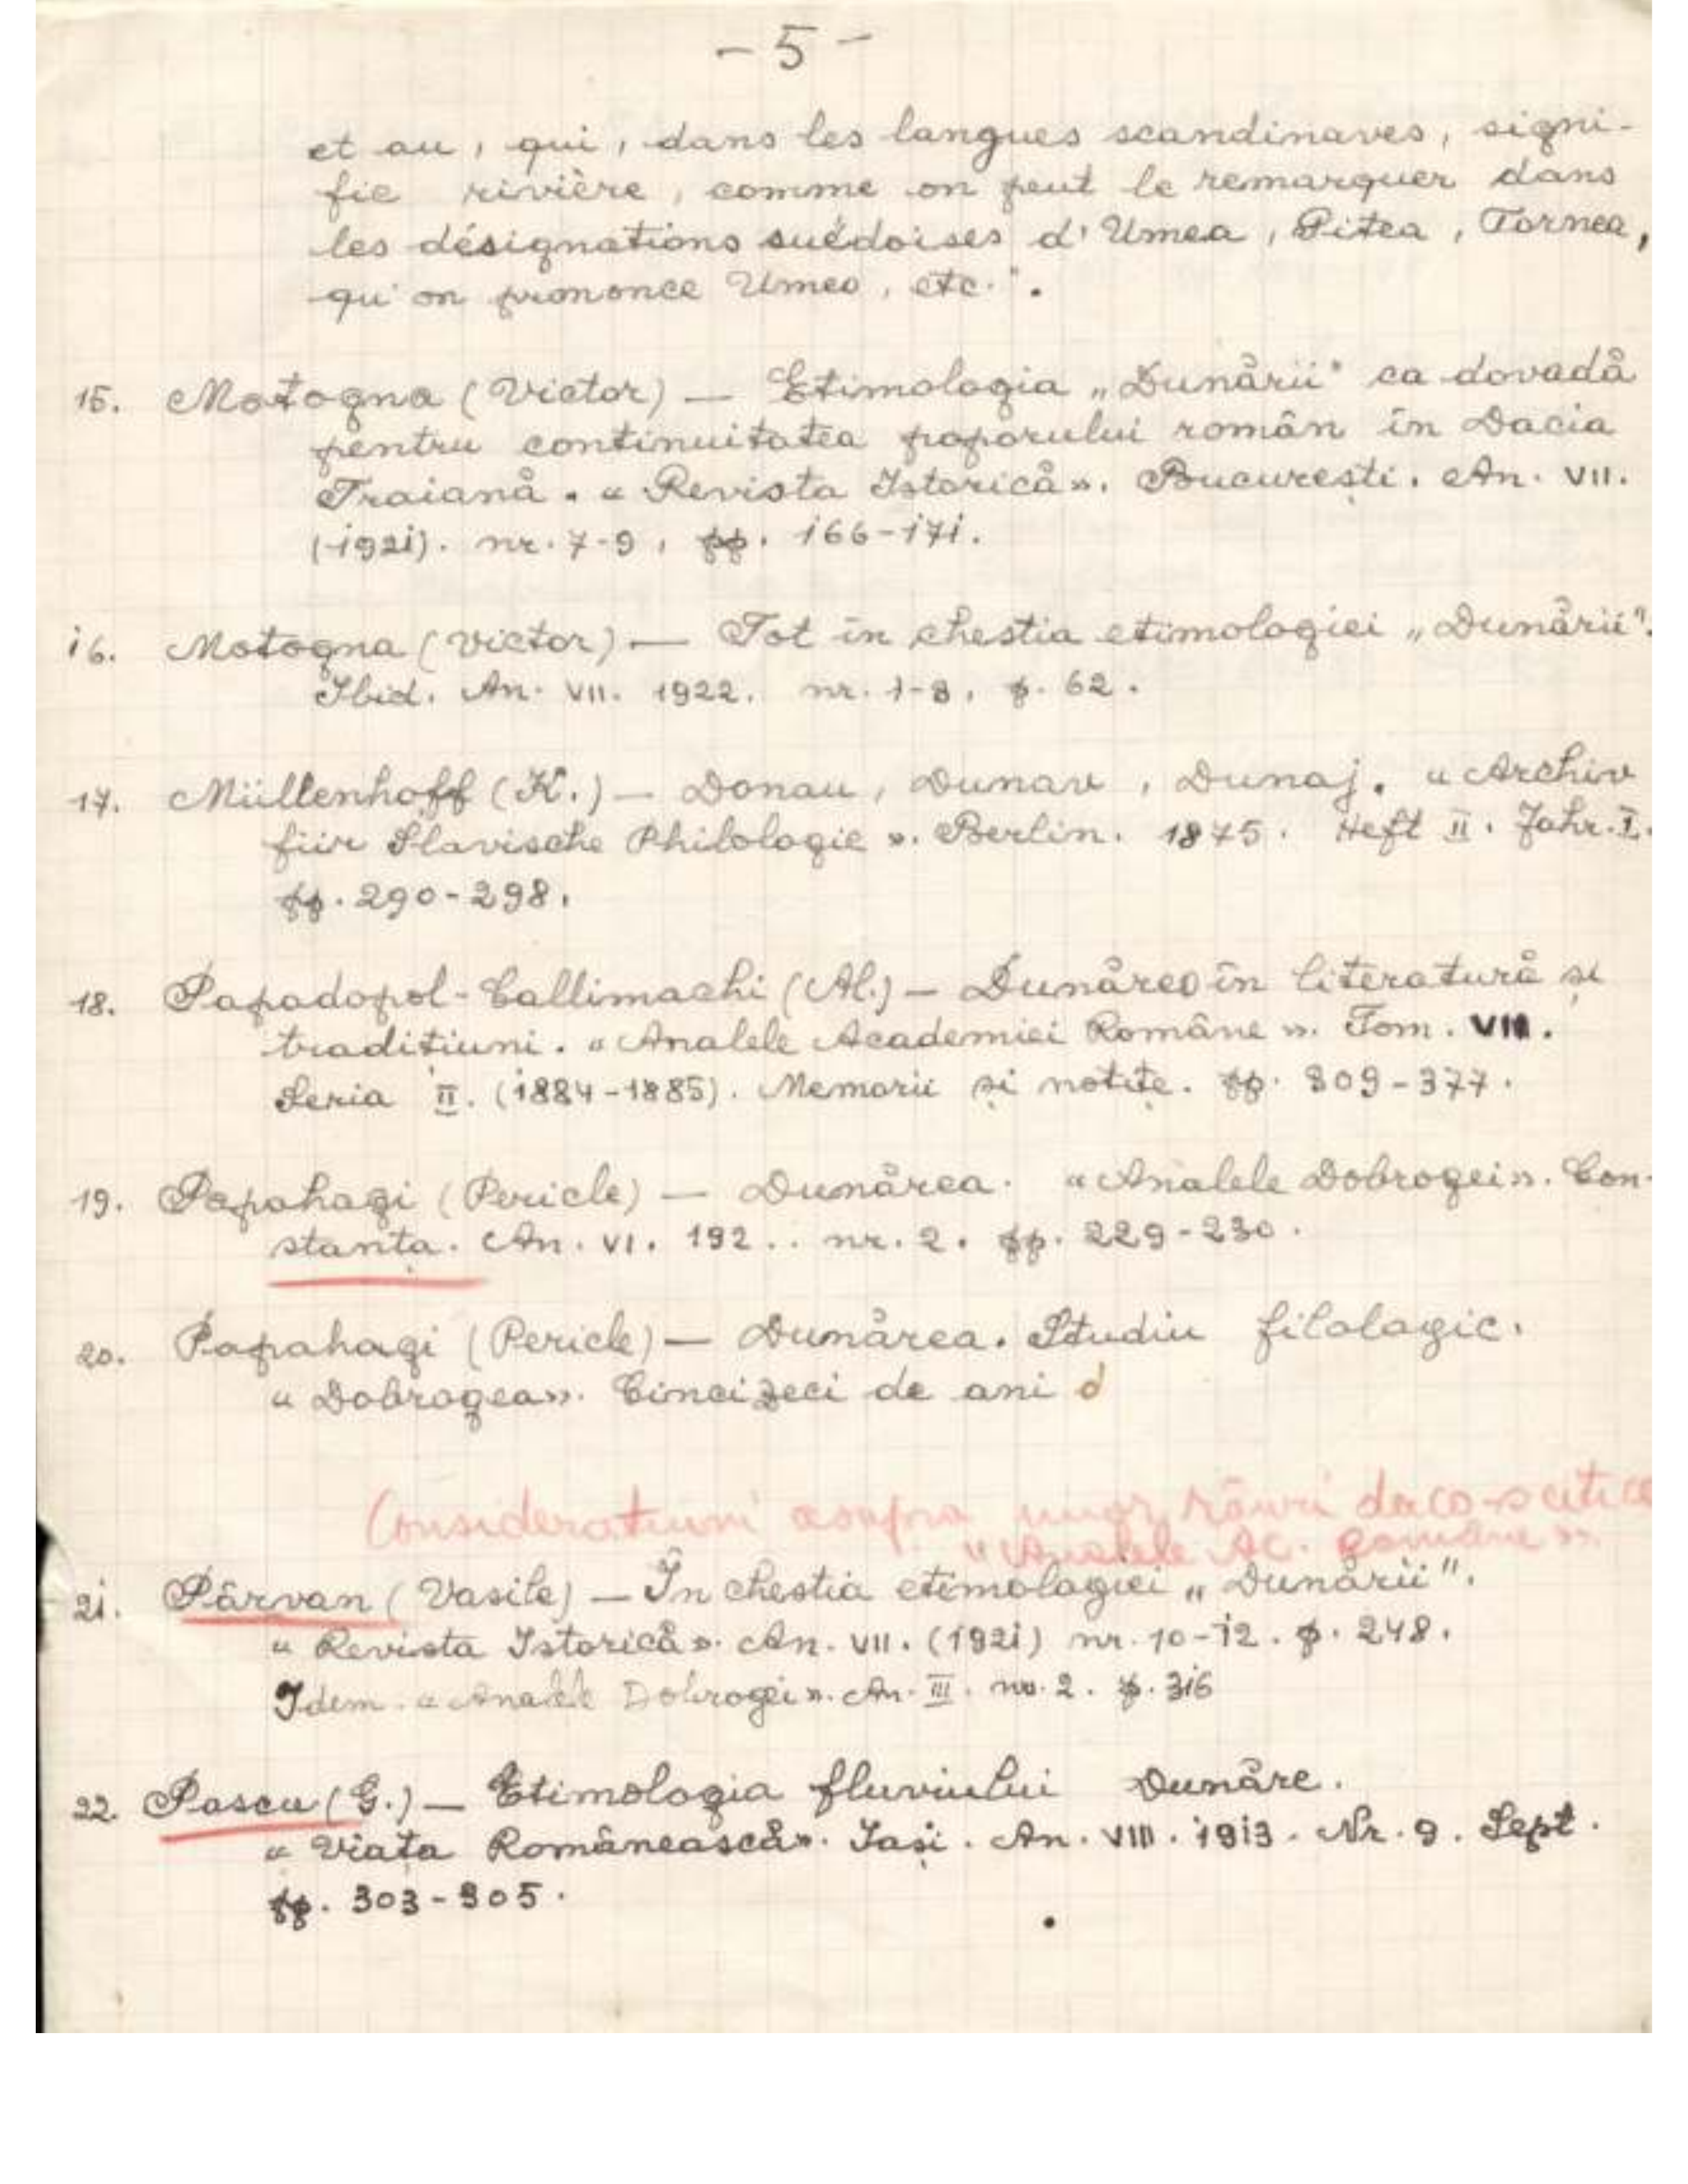 - 5 -
et au, qui, dans les langues scandinaves, signi-
fie rivière, comme on peut le remarquer dans
les désignations suédoises d'Umea, Pitea, Tornea,
qu'on prononce Umeo, etc.".
15. Motogna (Victor) — Etimologia „Dunării" ca dovadă
pentru continuitatea poporului român în Dacia
Traiană. « Revista Istorică». București. An. VII.
(1921). nr. 7-9, pp. 166-171.
16. Motogna (Victor) — Tot în chestia etimologiei „Dunării".
Ibid. An. VII. 1922. nr. 1-3, p. 62.
17. Müllenhoff (K.) — Donau, Dunav, Dunaj. « Archiv
für Slavische Philologie ». Berlin. 1875. Heft II. Jahr. I.
pp. 290-298.
18. Papadopol-Callimachi (Al.) — Dunărea în literatură și
tradițiuni. « Analele Academiei Române ». Tom. VII.
Seria II. (1884-1885). Memorii și notițe. pp. 309-377.
19. Papahagi (Pericle) — Dunărea. « Analele Dobrogei». Con-
stanța. An. VI. 192.. nr. 2. pp. 229-230.
20. Papahagi (Pericle) — Dunărea. Studiu filologic.
« Dobrogea». Cincizeci de ani d
Considerațiuni asupra unor râuri daco-scitice
"Analele Ac. Române ».
21. Pârvan (Vasile) — În chestia etimologiei „Dunării".
« Revista Istorică ». An. VII. (1921) nr. 10-12. p. 248.
Idem. « Analele Dobrogei ». An. III. nr. 2. p. 316
22. Pascu (G.) — Etimologia fluviului Dunăre.
« Viața Românească». Iași. An. VIII. 1913. Nr. 9. Sept.
pp. 303-305.